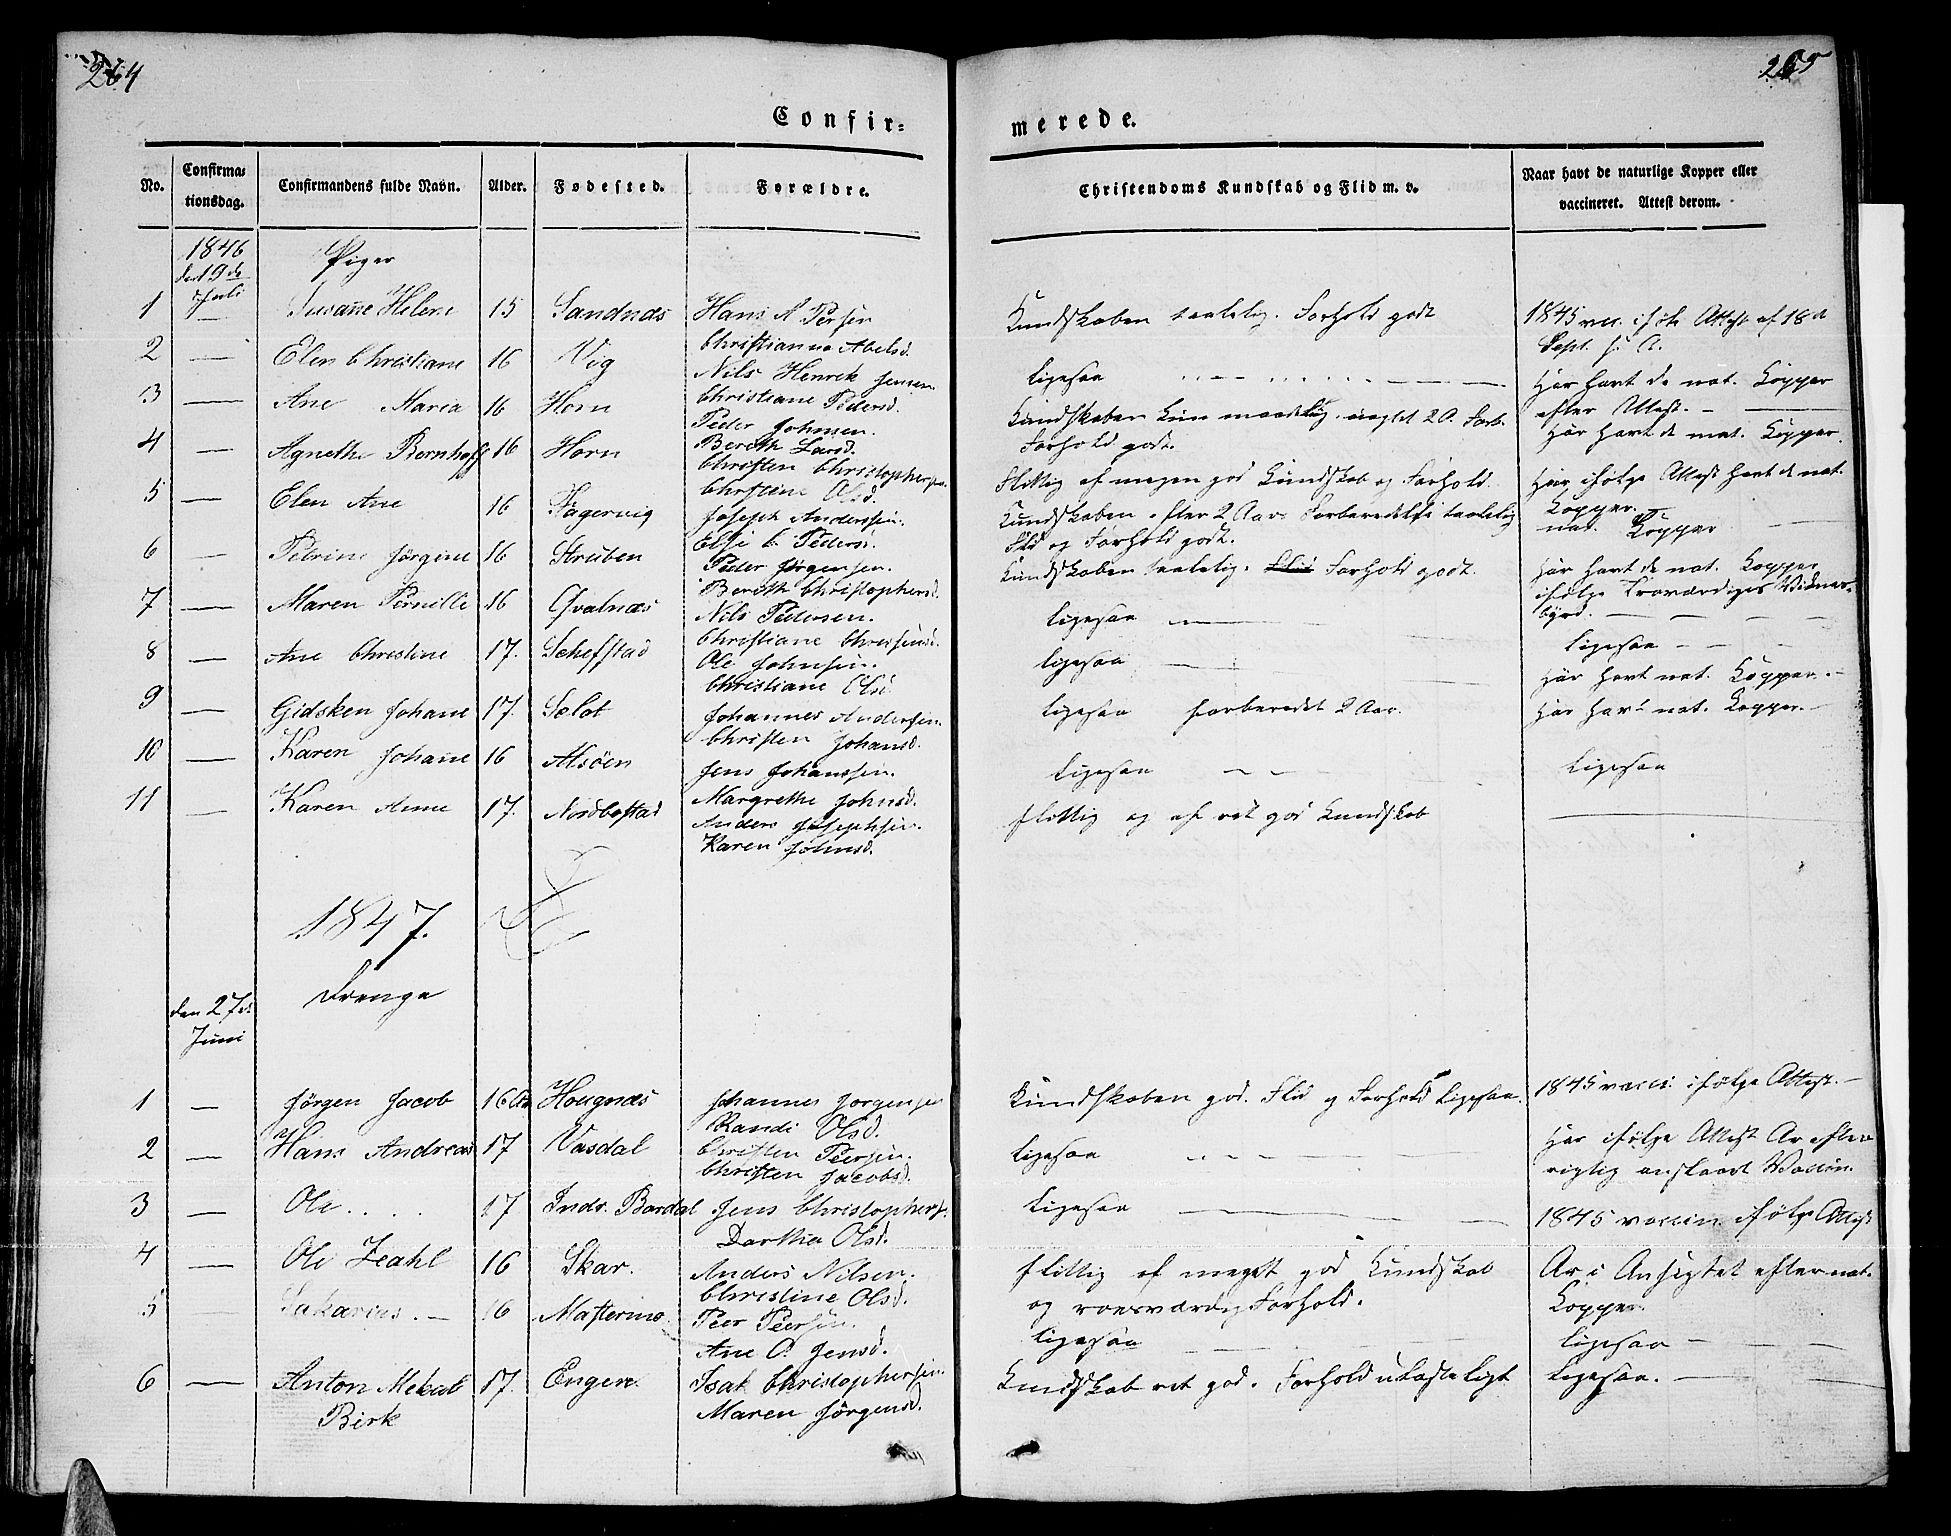 264
265
Confir-
merede.
No.
Confirma-
tionsdag.
Confirmandens fulde Navn.
Alder.
Fødested.
Forældre.
Christendoms Kundskab og Flid m. v.
Naar havt de naturlige Kopper eller
vaccineret. Attest derom.
1846
den 19de
Juli
Piger
1 Susane Helene 15 Sandnæs Hans A Persen
Christianna Abelsd.
Kundskaben taalelig. Forhold godt
1845 vac. ifølge Attest af 18d
Sept. s. A.
2 — Elen Christiane 16 Vig Nils Henrik Jensen
Christiane Pedersd.
ligesaa
Har havt de nat. Kopper
efter Attest. —
3 — Ane Maria 16 Horn Peder Johnsen.
Bereth Larsd.
Kundskaben kun maadelig. 2 A. Forb.
Forhold godt.
Har havt de nat. Kopper.
4 — Agnethe Bernhoff 16 Horn Christen Christophersen.
Christine Olsd.
Flittig af megen god Kundskab og Forhold.
Har ifølge Attest havt de nat.
Kopper.
5 — Elen Ane 16 Fagervig Joseph Anderssen.
Else C. Peders.
Kundskaben efter 2 Aars Forberedelse taalelig
Flid og Forhold godt.
nat. Kopper —
6 — Petrine Jørgine 16 Struben Peder Jørgensen.
Bereth Christophersd.
Kundskaben taalelig. Flid Forhold godt.
Har havt de nat. Kopper
ifølge Troværdiges Vidnes-
byrd. —
7 — Maren Pernille 16 Qvalnæs Nils Pedersen.
Christiane Christensd.
ligesaa —
ligesaa — —
8 — Ane Christine 17. Schefstad Ole Johnsen.
Christiane Olsd.
ligesaa —
Har havt nat. Kopper. —
9 — Gidsken Johane 17. Seløt Johannes Andersen.
Christen Johansd.
ligesaa forberedet 2 Aar.
Har havt nat. Kopper. —
10 — Karen Johane 16 Alsöen Jens Johanssen.
Margrethe Johnsd.
ligesaa — —
ligesaa
11 — Karen Anne 17. Nordbostad Anders Josephsen.
Karen Johnsd.
flittig og af ret god Kundskab
1847.
Drenge
den 27de
Juni
1 — Jørgen Jacob 16 Hougnæs Johannes Jørgensen
Randi Olsd.
Kundskaben god. Flid og Forhold ligesaa.
1845 vacci. ifølge Attest. —
2 — Hans Andreas 17 Vasdal Christen Peersen.
Christen Jacobsd.
ligesaa
Har ifølge Attest Ar efter
rigtig anslaaet Vaccin.
3 — Ole . . . . 17 Indr. Bardal Jens Christophers.
Dorthea Olsd.
ligesaa
1845 vaccin. ifølge Attest
4 — Ole Zeahl 16 Skar. Anders Nilsen.
Christine Olsd.
flittig af meget god Kundskab
og roesværdig Forhold.
Ar i Ansigtet efter nat.
Kopper.
5 — Sakarias. — 16 Masterino Peer Peersen.
Ane O. Jensd.
ligesaa
ligesaa —
6 — Anton Mekal 17. Engen. Isak Christophersen.
Birk
Maren Jørgensd.
Kundskab ret god. Forhold ulasteligt
ligesaa. —